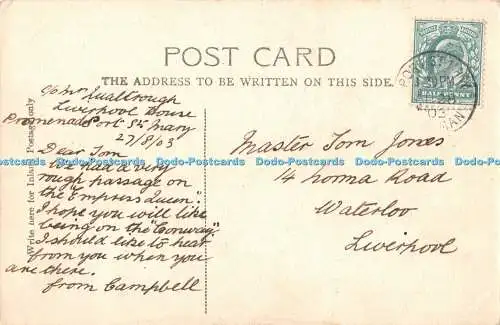 POST CARD
THE ADDRESS TO BE WRITTEN ON THIS SIDE.
Write here for Inland Postage only
HALF PENNY
c/o Mr Qualtrough
Liverpool House
Promenade Port St Mary
27/8/03
Dear Tom
We had a very
rough passage on
the "Empress Queen".
I hope you will like
being on the "Conway".
I should like to hear
from you when you
are there.
from Campbell
Master Tom Jones
14 Lorna Road
Waterloo
Liverpool
Dodo-Postcards Dodo-Postcards Dodo-Postcards Dodo-Postcards Dodo-Postcards